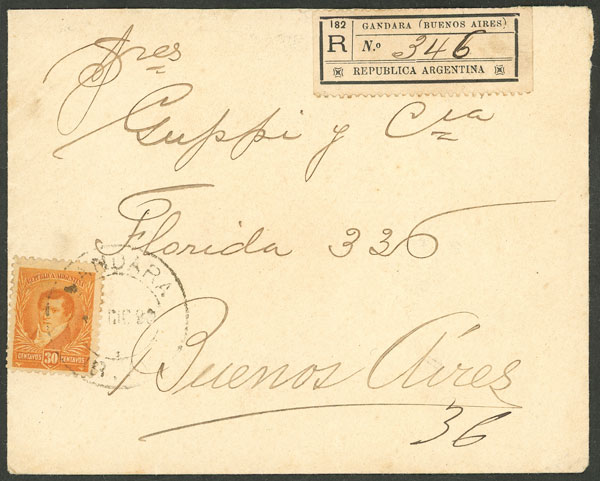 182
GANDARA (BUENOS AIRES)
R
N.o 346
REPUBLICA ARGENTINA
Sres
Guppi y Cia
Florida 336
Buenos Aires
36
REPUBLICA ARGENTINA
CENTAVOS 30 CENTAVOS
GANDARA
DIC